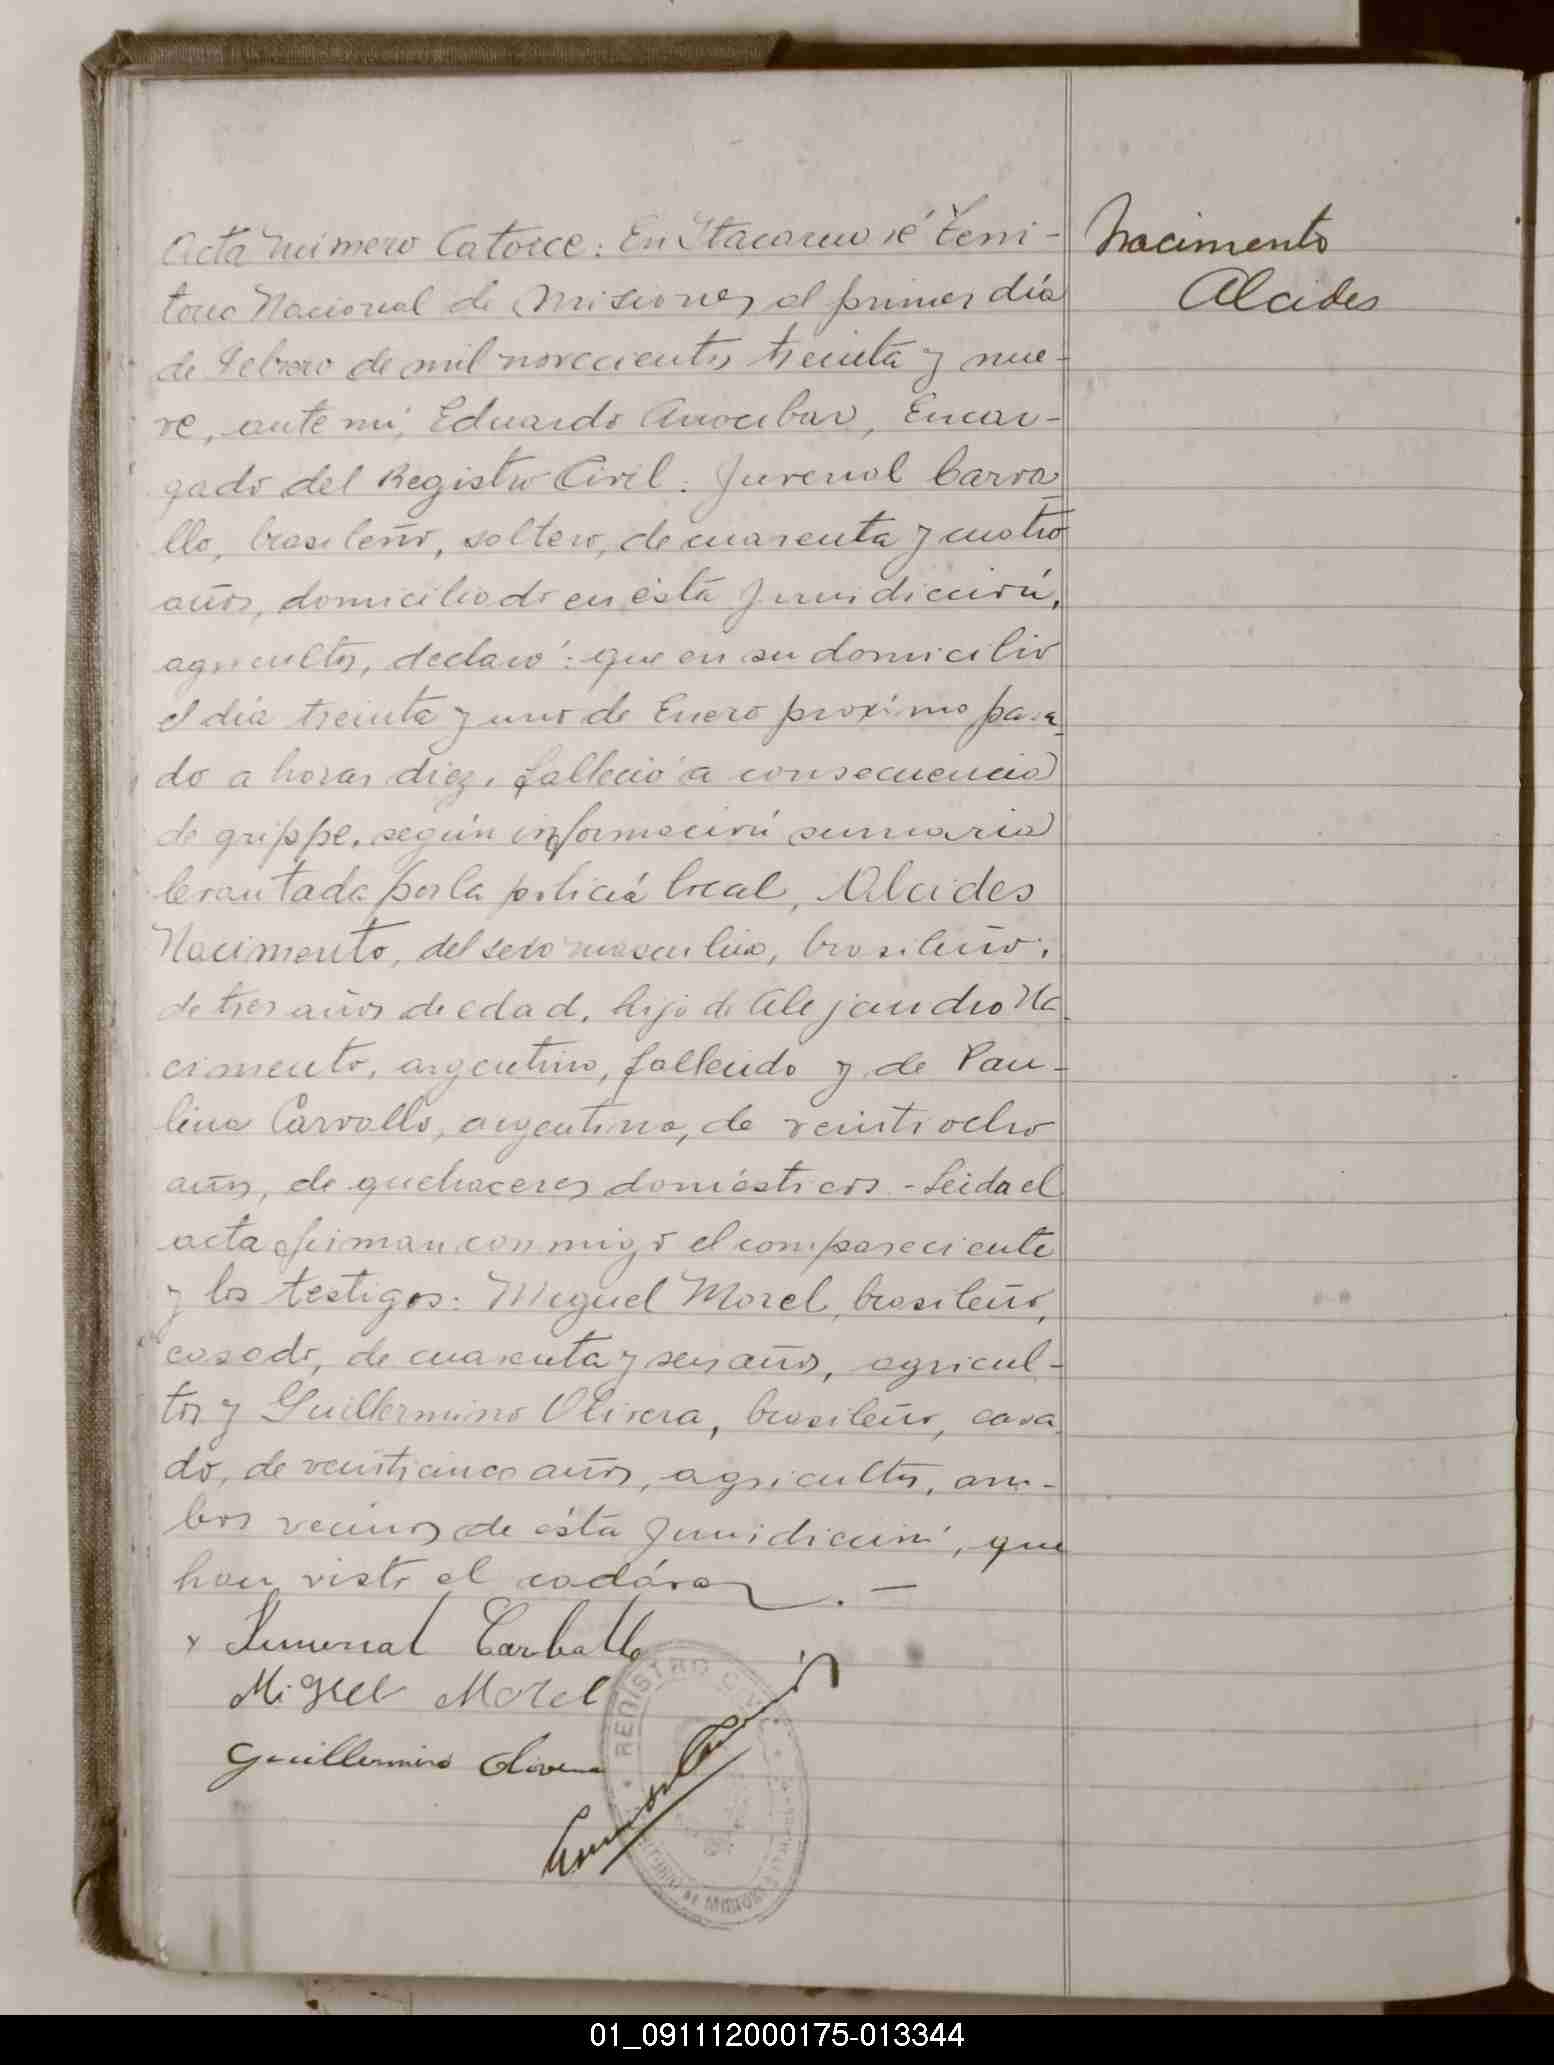 Acta número Catorce: En Itacaruaré Terri-
torio Nacional de Misiones al primer día
de Febrero de mil novecientos treinta y nue-
ve, ante mí, Eduardo Arrocubar, Encar-
gado del Registro Civil: Juvenal Carva
llo, brasileño, soltero, de cuarenta y cuatro
años, domiciliado en ésta jurisdicción,
agricultor, declaró: que en su domicilio
el día treinta y uno de Enero próximo pasa
do a horas diez, falleció a consecuencia
de grippe, según información sumaria
levantada por la policiá local, Alcides
Nacimento, del sexo masculino, brasileño,
de tres años de edad, hijo de Alejandro Na
cimento, argentino, fallecido y de Pau-
lina Carvallo, argentina, de veintiocho
años, de quehaceres domésticos - Leida el
acta firman conmigo el compareciente
y los testigos: Miguel Morel, brasileño,
casado, de cuarenta y seis años, agricul-
tor y Guillermino Olivera, brasileño, casa
do, de veinticinco años, agricultor, am-
bos vecinos de ésta jurisdicción, que
han visto el cadáver. -
Nacimento
Alcides
x Juvenal Carballo
Miguel Morel
Guillermino Olivera
REGISTRO CIVIL
01_091112000175-013344